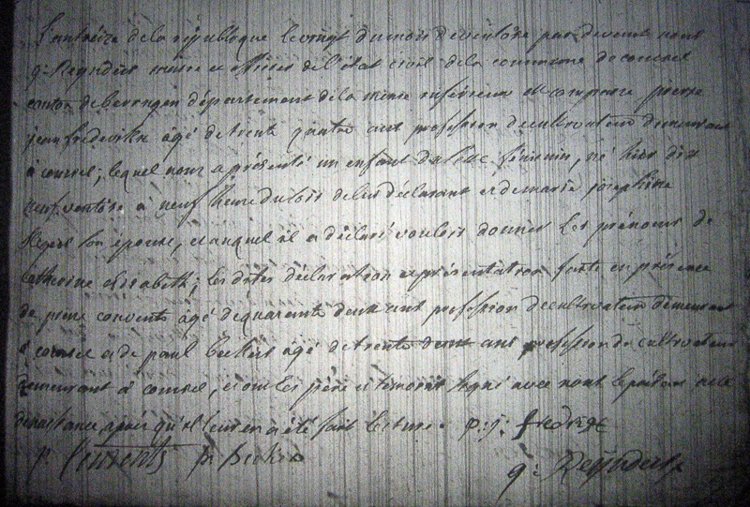 L'an treize de la république le vingt du mois de ventose par devant nous
g: Reynders maire et officier de l'état civil de la commune de coursel
canton de beringen département de la meuse inférieure est comparu pierre
jean frederickx âgé de trente quatre ans profession de cultivateur demeurant
à coursel; lequel nous a présenté un enfant du sexe féminin, né hier dix
neuf ventôse à neuf heure du soir de lui déclarant et de marie josephine
son épouse, et auquel il a déclaré vouloir donner les prénoms de
catherine elisabeth; les dites déclaration et présentation faite en présence
de pierre convents âgé de quarante deux ans profession de cultivateur demeurant
à coursel et de paul beckers âgé de trente ans profession de cultivateur
demeurant à coursel, et ont les père et temoins signé avec nous le présent acte
de naissance, après qu'il leur en a été fait lecture. p: j: fredrix
p. g: Reynders